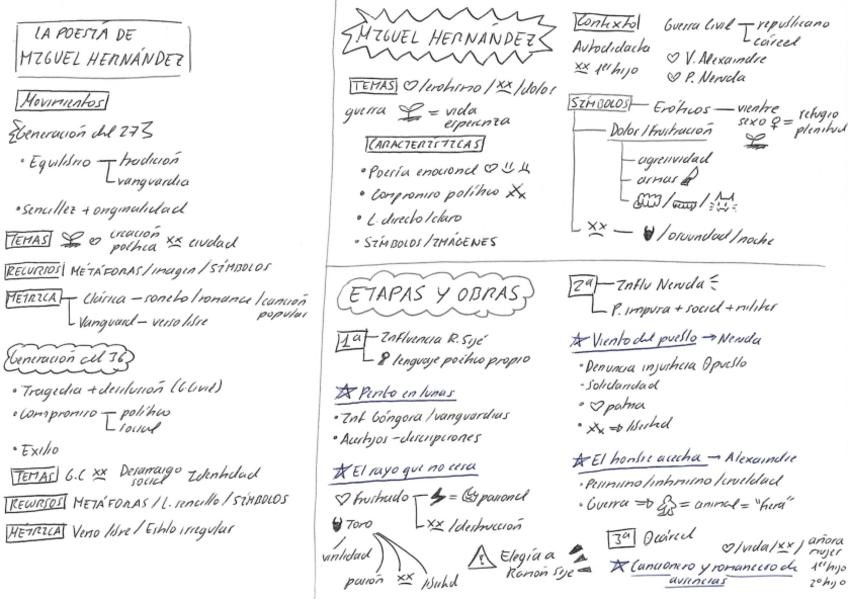 LA POESÍA DE
MIGUEL HERNÁNDEZ
Movimientos
Generación del 27
• Equilibrio tradición
vanguardia
• Sencillez + originalidad
TEMAS creación poética ciudad
RECURSOS METÁFORAS / imagen / SÍMBOLOS
MÉTRICA Clásica – soneto / romance / canción popular
Vanguard – verso libre
Generación del 36
• Tragedia + desilusión (G.Civil)
• Compromiso político
social
• Exilio
TEMAS G.C Desarraigo social Identidad
RECURSOS METÁFORAS / L. sencillo / SÍMBOLOS
MÉTRICA Verso libre / Estilo irregular
MIGUEL HERNÁNDEZ
TEMAS /erotismo / xx / dolor
guerra = vida
esperanza
CARACTERÍSTICAS
• Poesía emocional
• Compromiso político
• L. directo / claro
• SÍMBOLOS / IMÁGENES
Contexto Guerra Civil republicano
cárcel
Autodidacta
xx 1er hijo
V. Aleixandre
P. Neruda
SÍMBOLOS Eróticos – vientre
sexo ♀ = refugio
plenitud
Dolor / frustración
agresividad
armas
xx – / oscuridad / noche
ETAPAS Y OBRAS
1ª Influencia R. Sijé
lenguaje poético propio
Perito en lunas
• Inf. Góngora / vanguardias
• Acertijos – descripciones
El rayo que no cesa
frustrado = pasional
xx / destrucción
Toro
virilidad
pasión xx libertad
Elegía a
Ramón Sijé
2ª Influ Neruda
P. impura + social + militar
Viento del pueblo → Neruda
• Denuncia injusticia pueblo
• Solidaridad
• patria
• xx ⇒ libertad
El hombre acecha → Aleixandre
• Pesimismo / intimismo / crueldad
• Guerra ⇒ = animal = "fiera"
3ª cárcel
/ vida / xx / añora
mujer
1er hijo
2º hijo
Cancionero y romancero de
ausencias